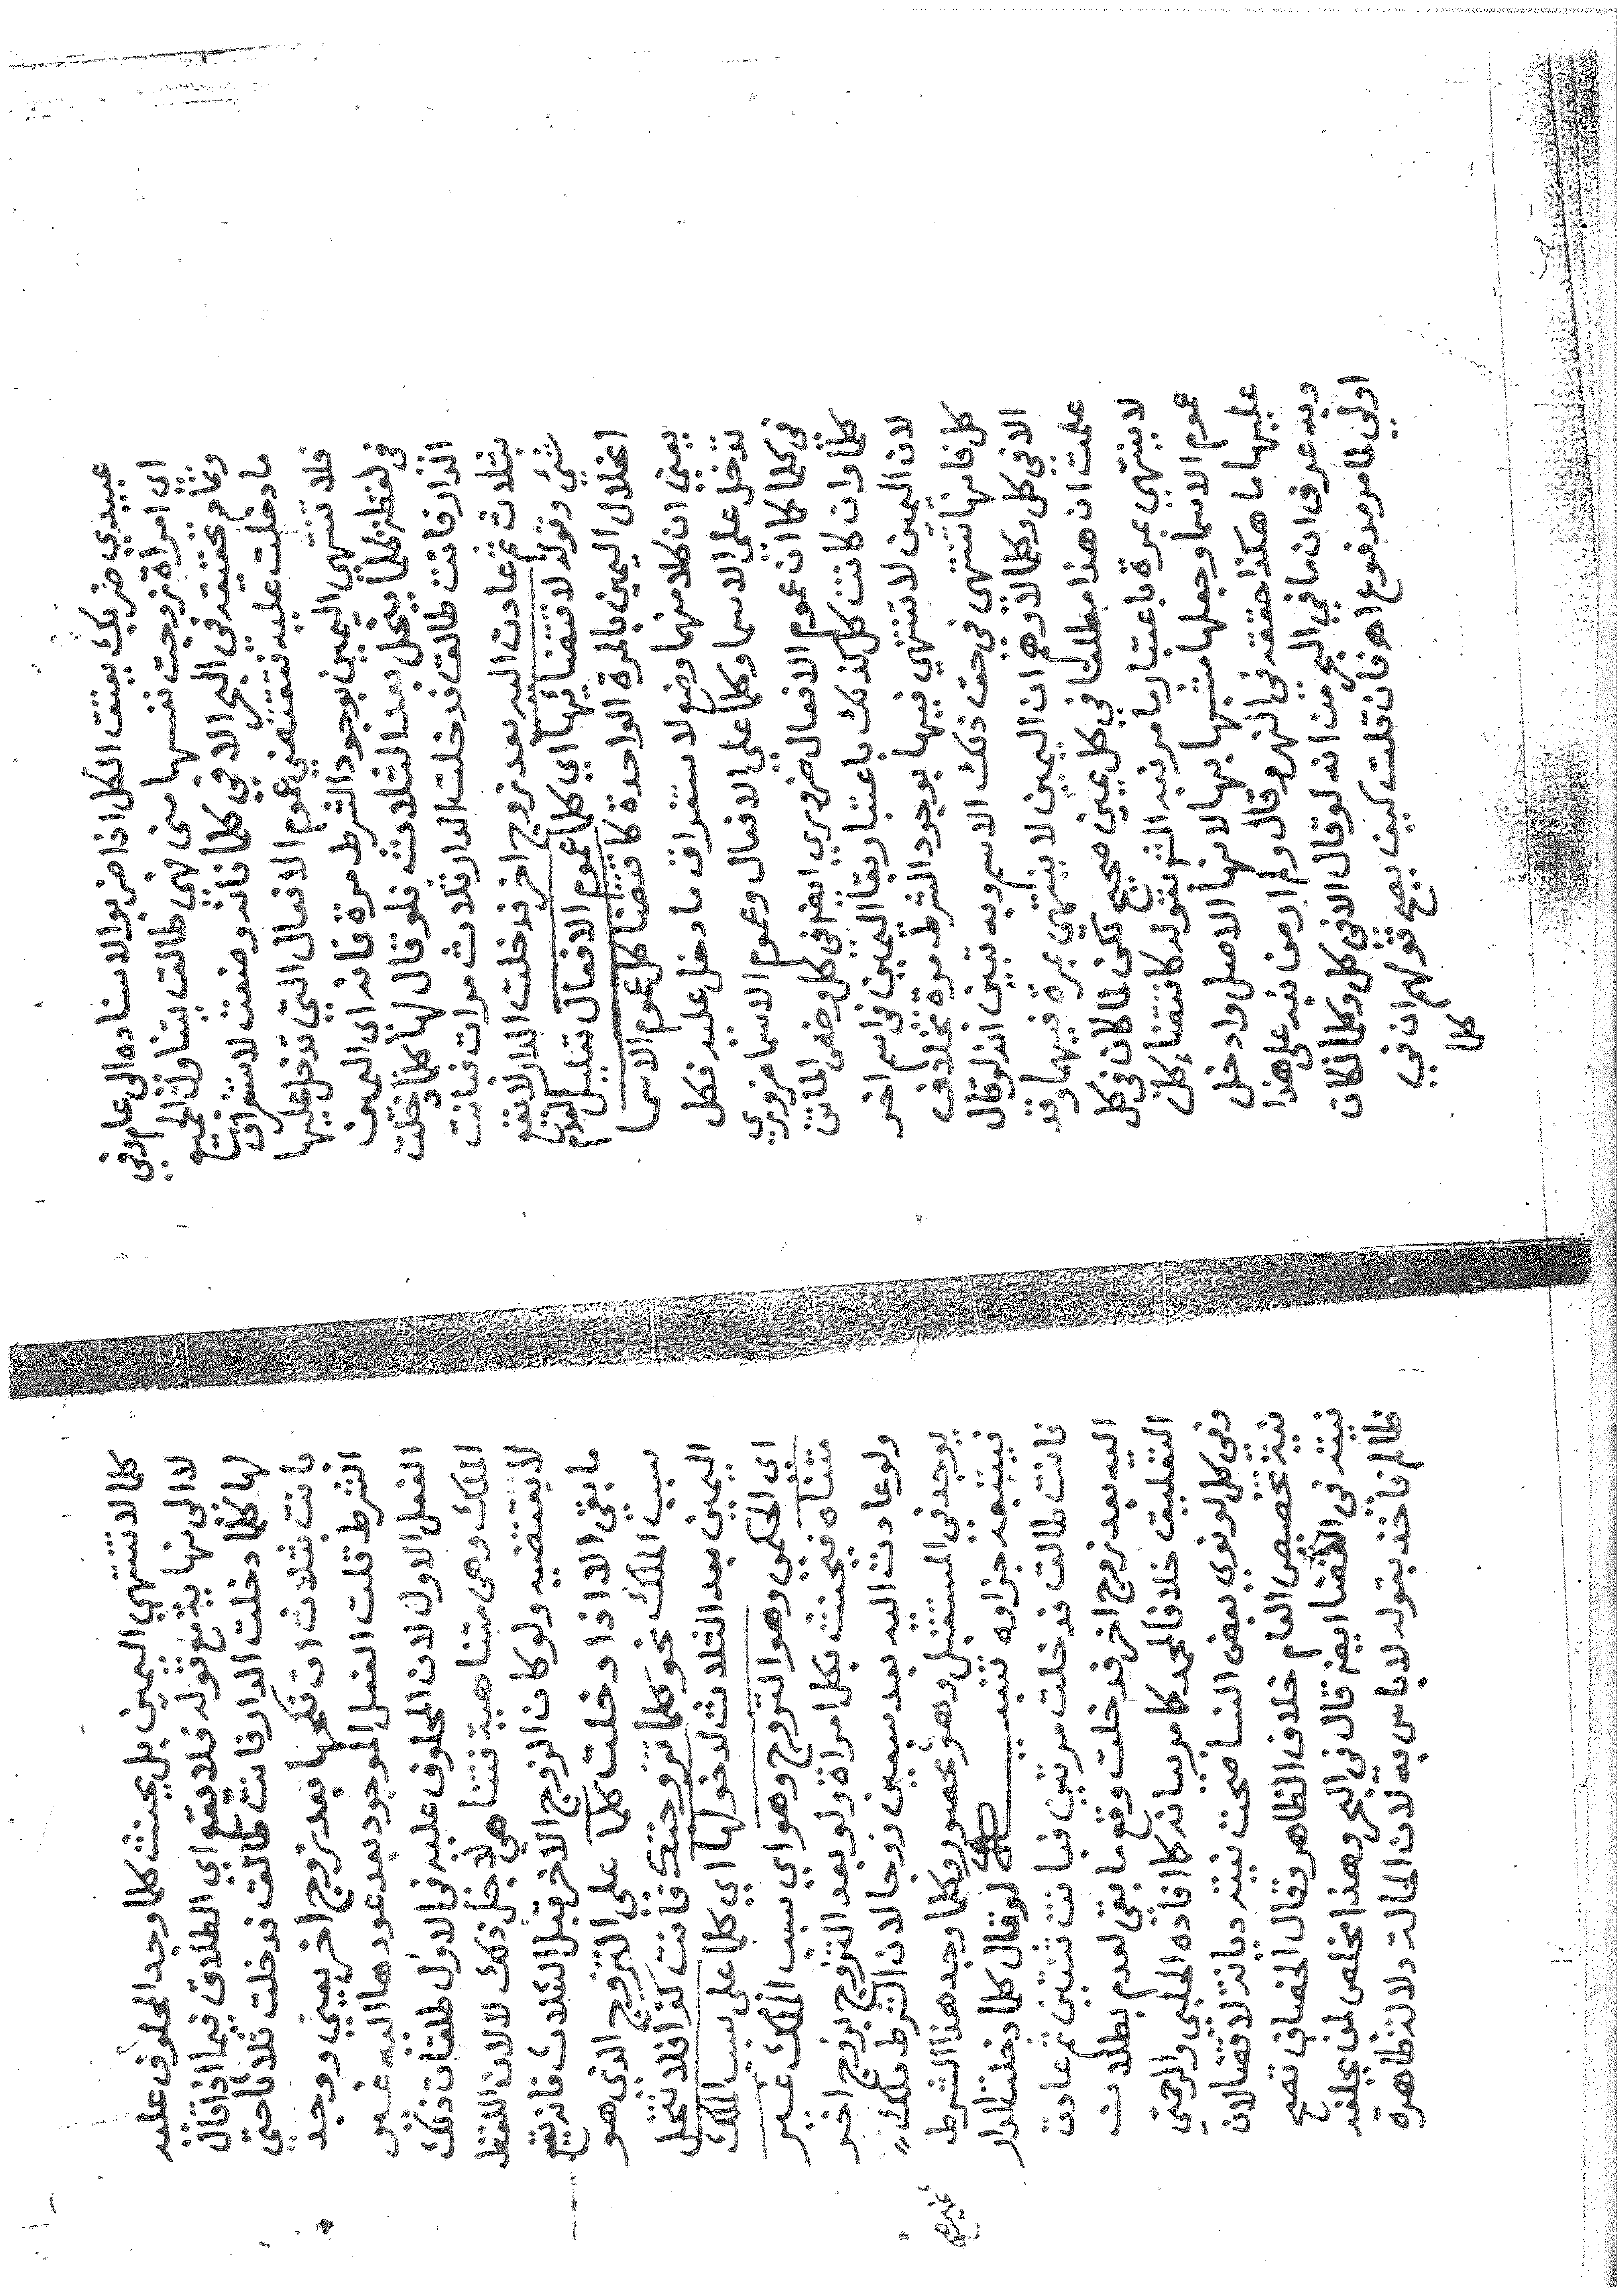 عبيدي ضربك يعتق الكل اذا ضربوا لاسناده الى عام وفي
اى امراة زوجت نفسها مني فهي طالق يتناول الجميع
وتمام تحقيقه في البحر الا في كلما فانه وضعت لاستغراق
ما دخلت عليه فتقتضي عموم الافعال التي تدخل عليها
فلا تنتهي اليمين بوجود الشرط مرة فانه اى اليمين
في لفظ كلما ينحل بعد الثلاث فلو قال لها كلما دخلت
الدار فانت طالق فدخلت الدار ثلاث مرات فبانت
بثلاث ثم عادت اليه بعد زوج اخر فدخلت الدار لا يقع
شئ وقوله لاقتضائها اي كلما عموم الافعال تعليل لعدم
انحلال اليمين بالمرة الواحدة كاقتضا كل عموم الاسما
يعني ان كلا منهما وضع لاستغراق ما دخل عليه فكل
تدخل على الاسما وكلما على الافعال وعموم الاسما ضروري
في كلما كما ان عموم الافعال ضروري ايضا في كل وضعي الماتن
كلما وان كانت كل كذلك باعتبار بقا اليمين في اسم اخر
لان اليمين لا تنتهي فيها بوجود الشرط مرة بخلاف
كل فانها تنتهي في حق ذلك الاسم وبه تبين انه لو قال
الا في كل وكلما لاوهم ان اليمين لا ينتهي بمرة فيهما وقد
علمت ان هذا مطلقا في كل يمين صحيح لكن لما كان في كل
لا ينتهي بمرة باعتبار ما مر نبه الشم بقوله كاقتضاء كل
عموم الاسما وجعلها مشبها بها لانها الاصل وادخل
عليها ما هكذا حققه في النهر وقال ولم ار من نبه على هذا
وبه عرف ان ما في البحر من انه لو قال الا في كل وكلما لكان
اولى لما مر مدفوع اهـ فان قلت كيف يصح قولهم ان في
كلما
كلما لا تنتهي اليمين بل يحنث كلما وجد المحلوف عليه
لا الى نهاية مع قوله فلا يقع اي الطلاق فيما اذا قال
لها كلما دخلت الدار فانت طالق فدخلت ثلاثا حتي
بانت بثلاث ان نكحها بعد زوج اخر يعني ووجد
الشرط قلت الفعل الموجود بعد عودها اليه غير
الفعل الاول لان المحلوف عليه في الاول طلقات ذلك
الملك وهي متناهية فتناهي لاجل ذلك لا لان اللفظ
لا يقتضيه ولو كان الزوج الاخر قبل الثلاث فانه يقع
ما بقي الا اذا دخلت كلما على التزوج الذي هو
سبب الملك نحو كلما تزوجتك فانت كذا فلا تنحل
اليمين بعد الثلاث لدخولها اي كلما على سبب الملك
اى الحكمي وهو التزوج وهو اي سبب الملك غير
متناه فيحنث بكل امراة ولو بعد التزوج بزوج اخر
ولو عادت اليه بعد سبعين زوجا لان الشرط ملك
يوجد في المستقبل وهو غير محصور وكلما وجد هذا الشرط
فيتبعه جزاوه تنبيـــــه لو قال كلما دخلت الدار
فانت طالق فدخلت مرتين فبانت بثنتين ثم عادت
اليه بعد زوج اخر فدخلت وقع ما بقي لعدم بطلان
التعليق خلافا لمحمد كما مر بيانه كما افاده الحلبي والرحمتي
وفي كل لو نوى بعض النسا صحت نيته ديانة لا قضا لان
نية تخصيص العام خلاف الظاهر وقال الخصاف تصح
نيته في القضا ايضا قال في البحر وهذا مخلص لمن يحلفه
ظالم فاخذ بقوله لا باس به لان الحالة دلالة ظاهرة